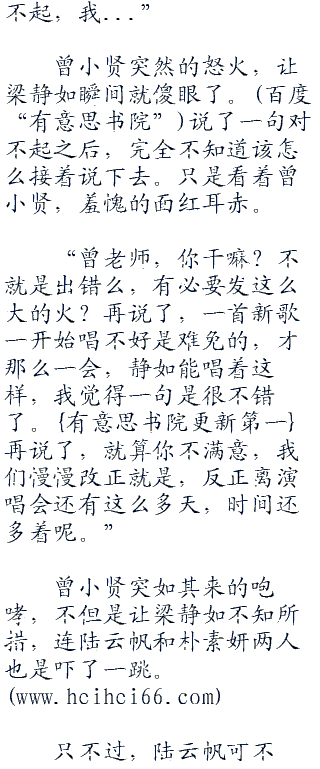 不起，我...”
曾小贤突然的怒火，让
梁静如瞬间就傻眼了。(百度
“有意思书院”)说了一句对
不起之后，完全不知道该怎
么接着说下去。只是看着曾
小贤，羞愧的面红耳赤。
“曾老师，你干嘛？不
就是出错么，有必要发这么
大的火？再说了，一首新歌
一开始唱不好是难免的，才
那么一会，静如能唱着这
样，我觉得一句是很不错
了。{有意思书院更新第一}
再说了，就算你不满意，我
们慢慢改正就是，反正离演
唱会还有这么多天，时间还
多着呢。”
曾小贤突如其来的咆
哮，不但是让梁静如不知所
措，连陆云帆和朴素妍两人
也是吓了一跳。
(www.hcihci66.com)
只不过，陆云帆可不